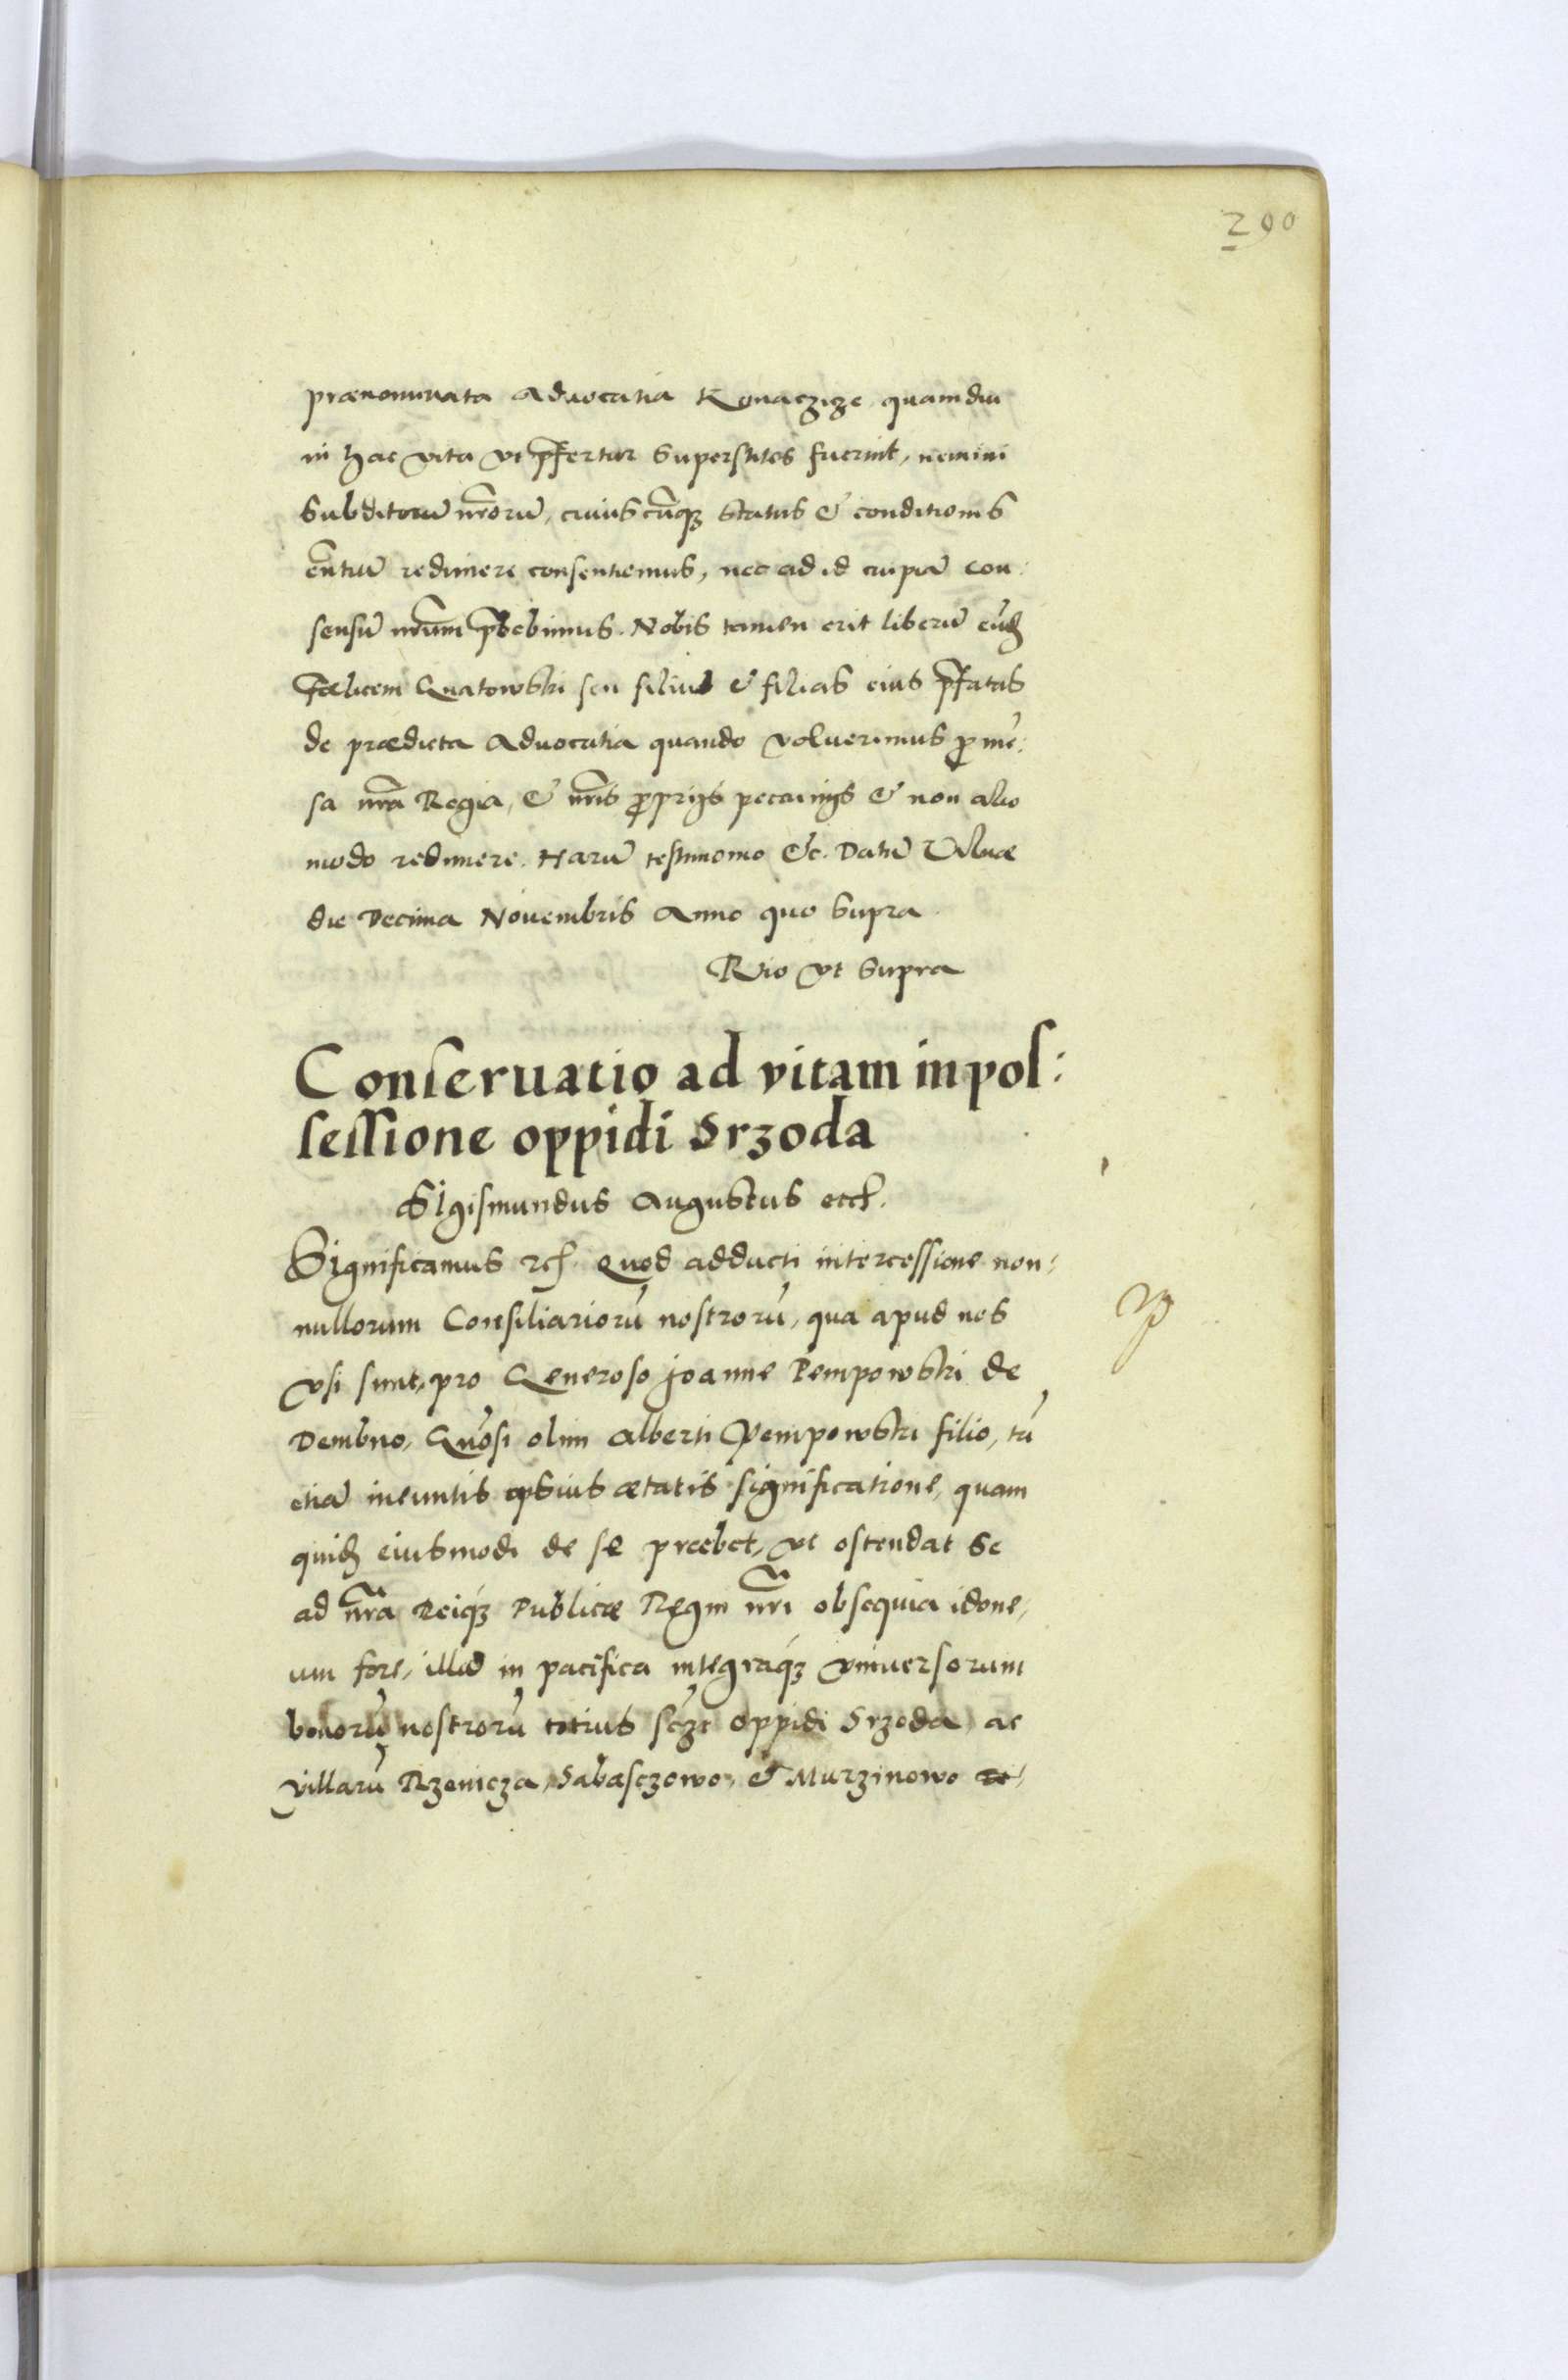 290
prænominata Aduocatia Konaczicze quamdiu
in hac vita vt p̄fertur superstites fuerint, nemini
subditorū nr̄orū, cuiuscūqꝫ status & conditionis
entiū redimere consentiemus, nec ad id cuipiā con:
sensū nr̄um p̄bebimus. Nobis tamen erit liberū eūd̄
Fœlicem Gnatowski seu filium & filias eius p̄fatas
de prædicta Aduocatia quando voluerimus ꝓ mē:
sa nr̄a Regia, & nr̄is ꝓprijs pecunijs & non alio
modo redimere. Harū testimonio &c. Datū Vilnæ
die Decima Nouembris Anno quo supra
Rṽo vt supra
Conseruatio ad vitam in pos:
sessione oppidi Srzoda
Sigismundus Augustus etc̄.
Significamus etc̄. Quod adducti intercessione non:
nullorum Consiliariorū nostrorū, qua apud nos
vsi sunt, pro Generoso Joanne Pempowski de
Dembno, Gñosi olim Alberti Pempowski filio, tū
etiā ineuntis ipsius ætatis significatione, quam
quid̄ eiusmodi de se præbet, vt ostendat se
ad nr̄a Reiqꝫ Publicæ Regni nr̄i obsequia idone,
um fore, illū in pacifica integraqꝫ vniuersorum
bonorū nostrorū totius sczt oppidi Srzoda, ac
villarū Rzenicza, Sabasczowo, & Murzinowo